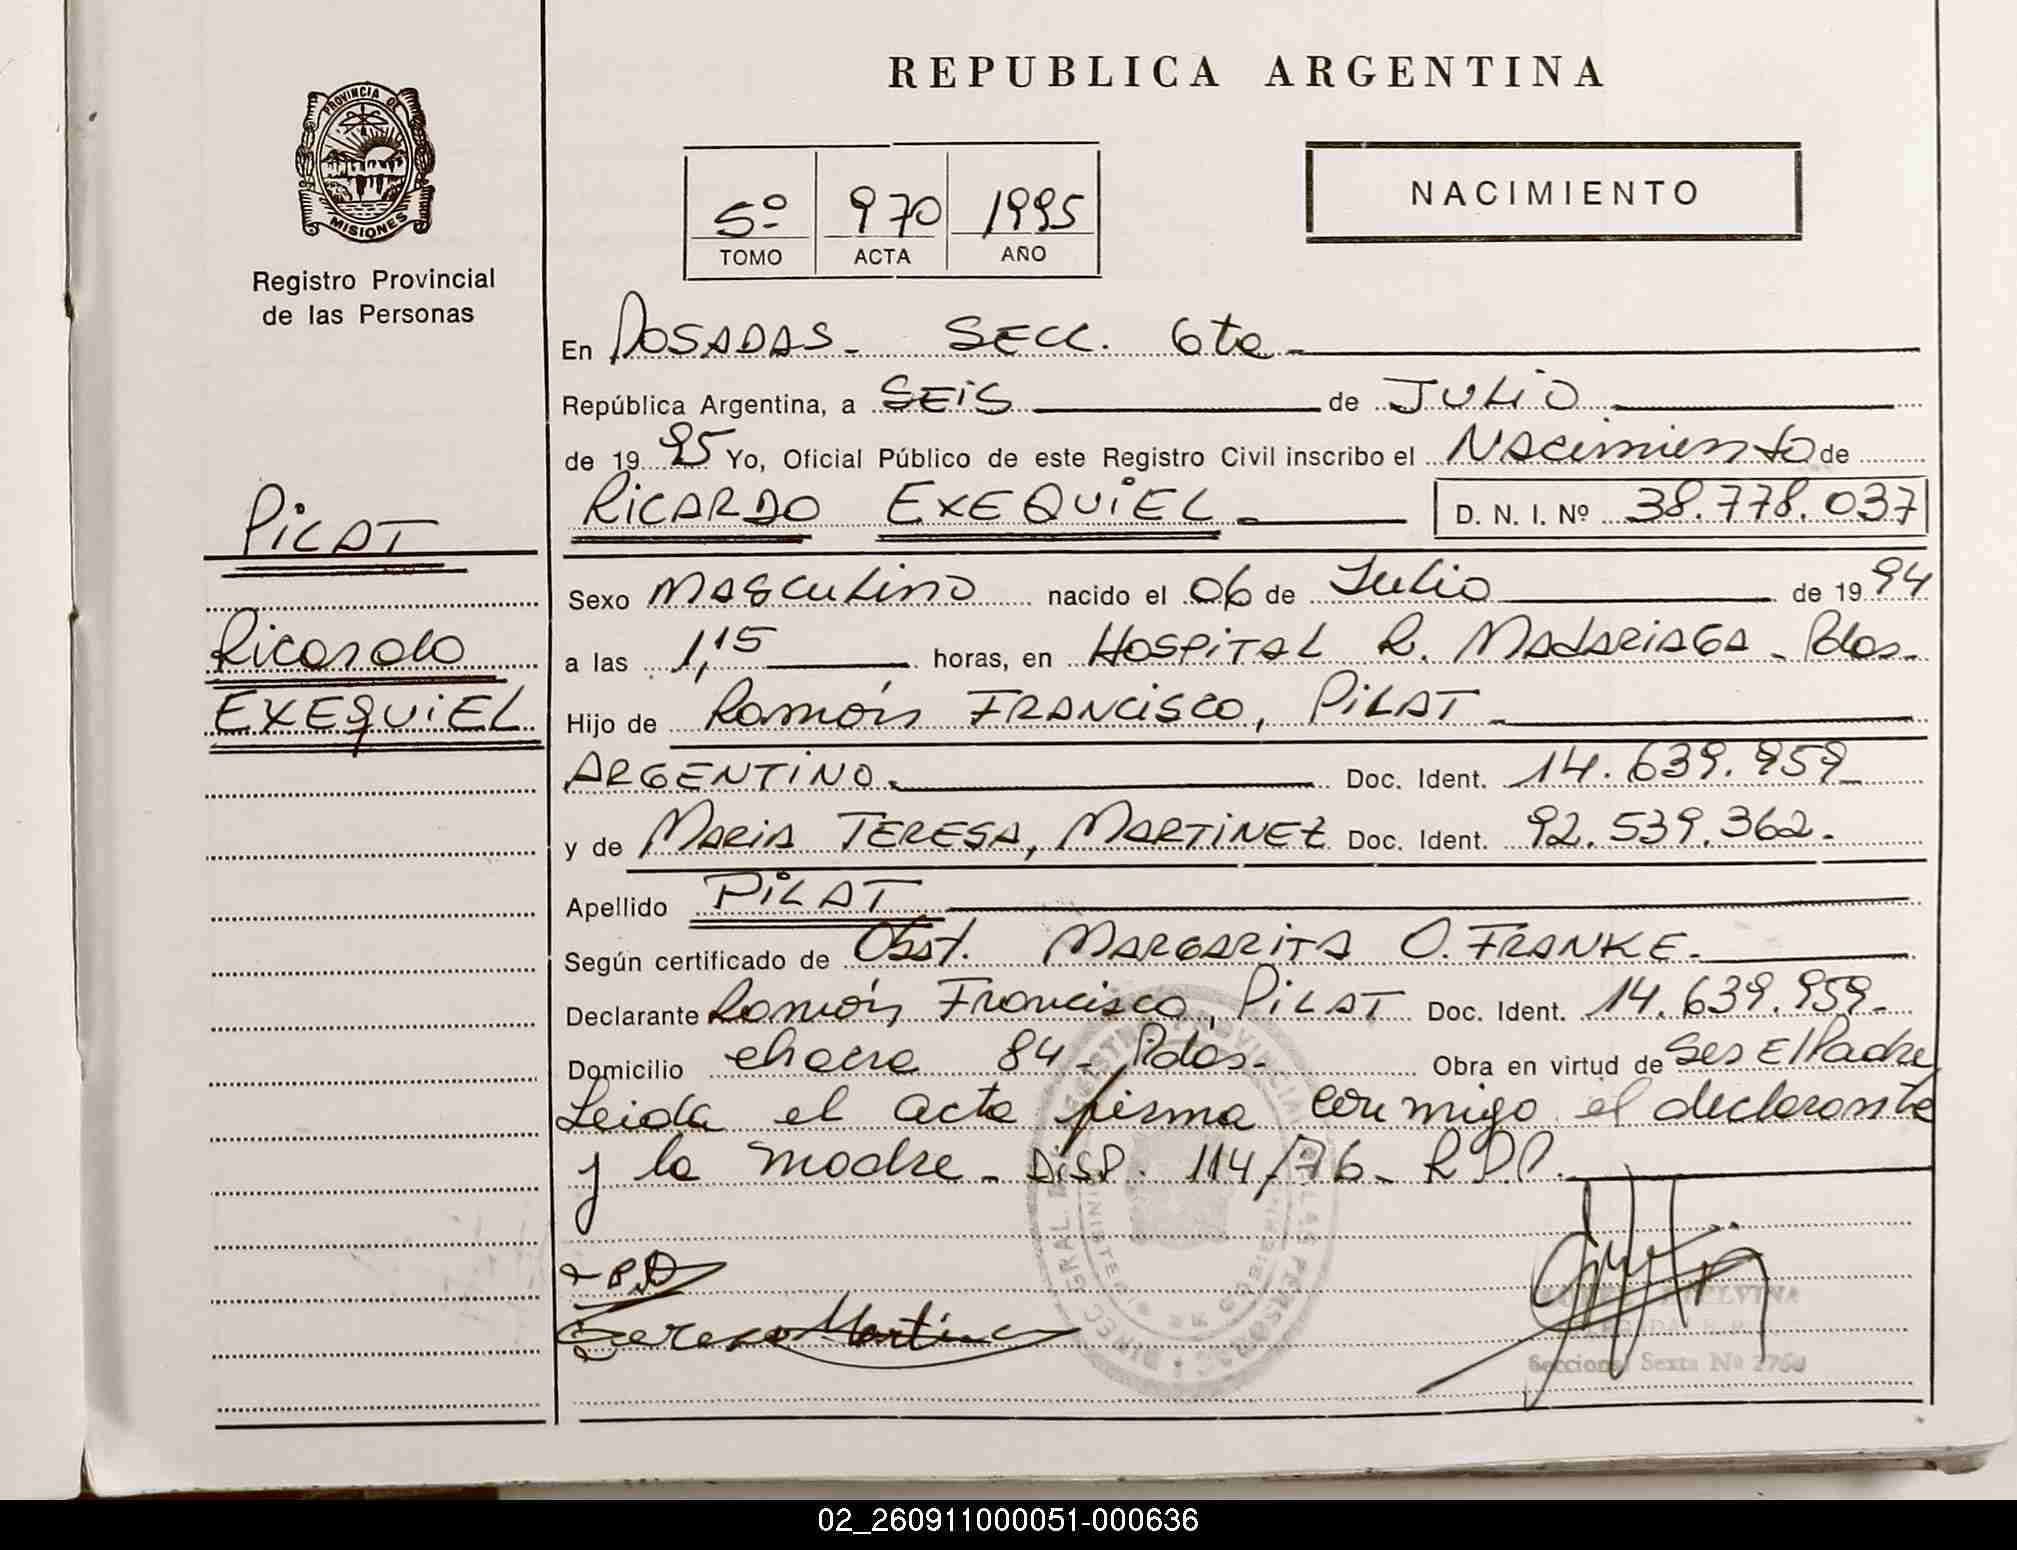 REPUBLICA ARGENTINA
PROVINCIA DE
MISIONES
Registro Provincial
de las Personas
5º 970 1995
TOMO ACTA AÑO
NACIMIENTO
En POSADAS - SECC. 6ta -
República Argentina, a SEIS de JULIO
de 1995 Yo, Oficial Público de este Registro Civil inscribo el Nacimiento de
RICARDO EXEQUIEL - D. N. I. Nº 38.778.037
PILAT
Sexo MASCULINO nacido el 06 de Julio de 1994
Ricardo
a las 1,15 horas, en HOSPITAL R. MADARIAGA - Pdas.
EXEQUIEL
Hijo de Ramón FRANCISCO, PILAT -
ARGENTINO. Doc. Ident. 14.639.959
y de MARIA TERESA, MARTINEZ Doc. Ident. 92.539.362.
Apellido PILAT
Según certificado de Obst. MARGARITA O. FRANKE.
Declarante Ramón Francisco, PILAT Doc. Ident. 14.639.959.
Domicilio chacra 84 - Pdas. Obra en virtud de Ser El Padre
Leida el acta firma conmigo el declarante
y la madre - DISP. 114/76 - R.P.P.
Teresa Martinez
Seccional Sexta Nº
02_260911000051-000636